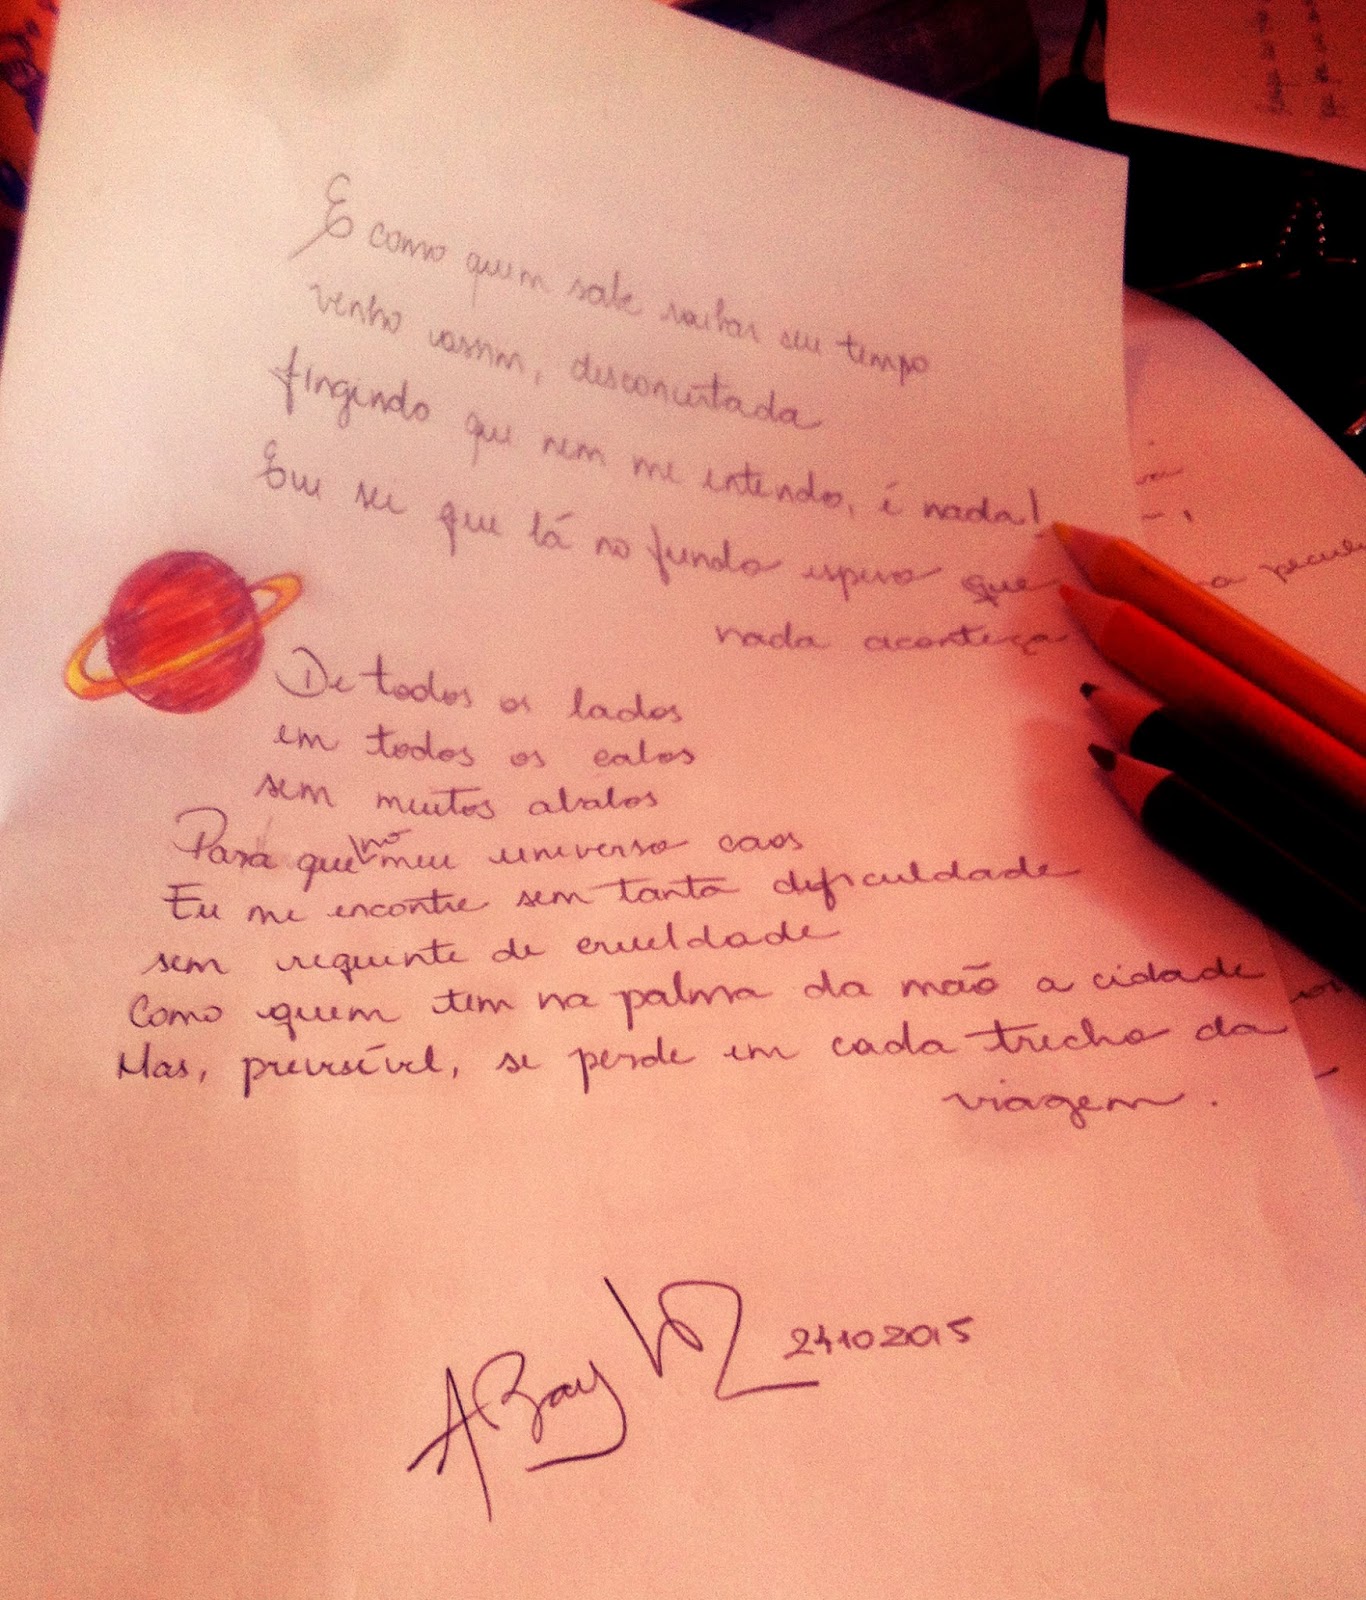 E como quem sabe roubar seu tempo
venho assim, desconcertada
fingindo que nem me entendo, é nada!
Eu sei que lá no fundo espero que
nada aconteça
De todos os lados
em todos os calos
sem muitos abalos
Para que no meu universo caos
Eu me encontre sem tanta dificuldade
sem requinte de crueldade
Como quem tem na palma da mão a cidade
Mas, previsível, se perde em cada trecho da
viagem.
24102015